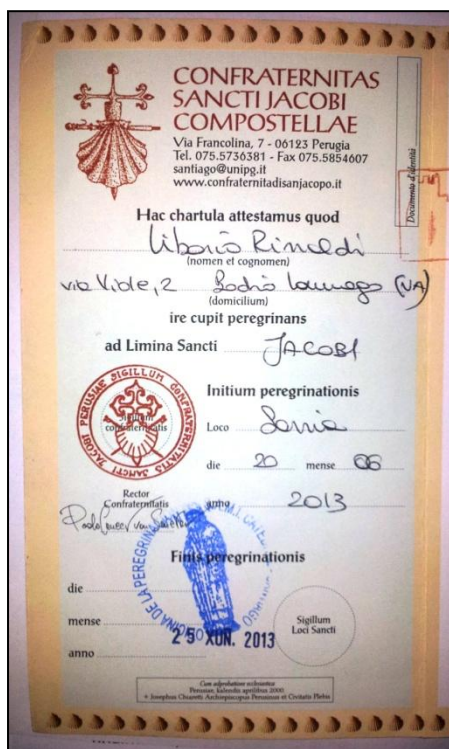 CONFRATERNITAS
SANCTI JACOBI
COMPOSTELLAE
Via Francolina, 7 - 06123 Perugia
Tel. 075.5736381 - Fax 075.5854607
santiago@unipg.it
www.confraternitadisanjacopo.it
Documento d'identità
Hac chartula attestamus quod
Liborio Rinaldi
(nomen et cognomen)
via Viole, 2
(domicilium)
ire cupit peregrinans
ad Limina Sancti JACOBI
SIGILLUM CONFRATERNITATIS SANCTI JACOBI PERUSIAE
Sigillum
confraternitatis
Initium peregrinationis
Loco Sarria
die 20 mense 06
Rector
Confraternitatis
anno 2013
Finis peregrinationis
die
mense
25 XUN. 2013
anno
Sigillum
Loci Sancti
Cum adprobatione ecclesiastica
Perusiae, kalendis aprilibus 2000
+ Josephus Chiaretti Archiepiscopus Perusinus et Civitatis Plebis